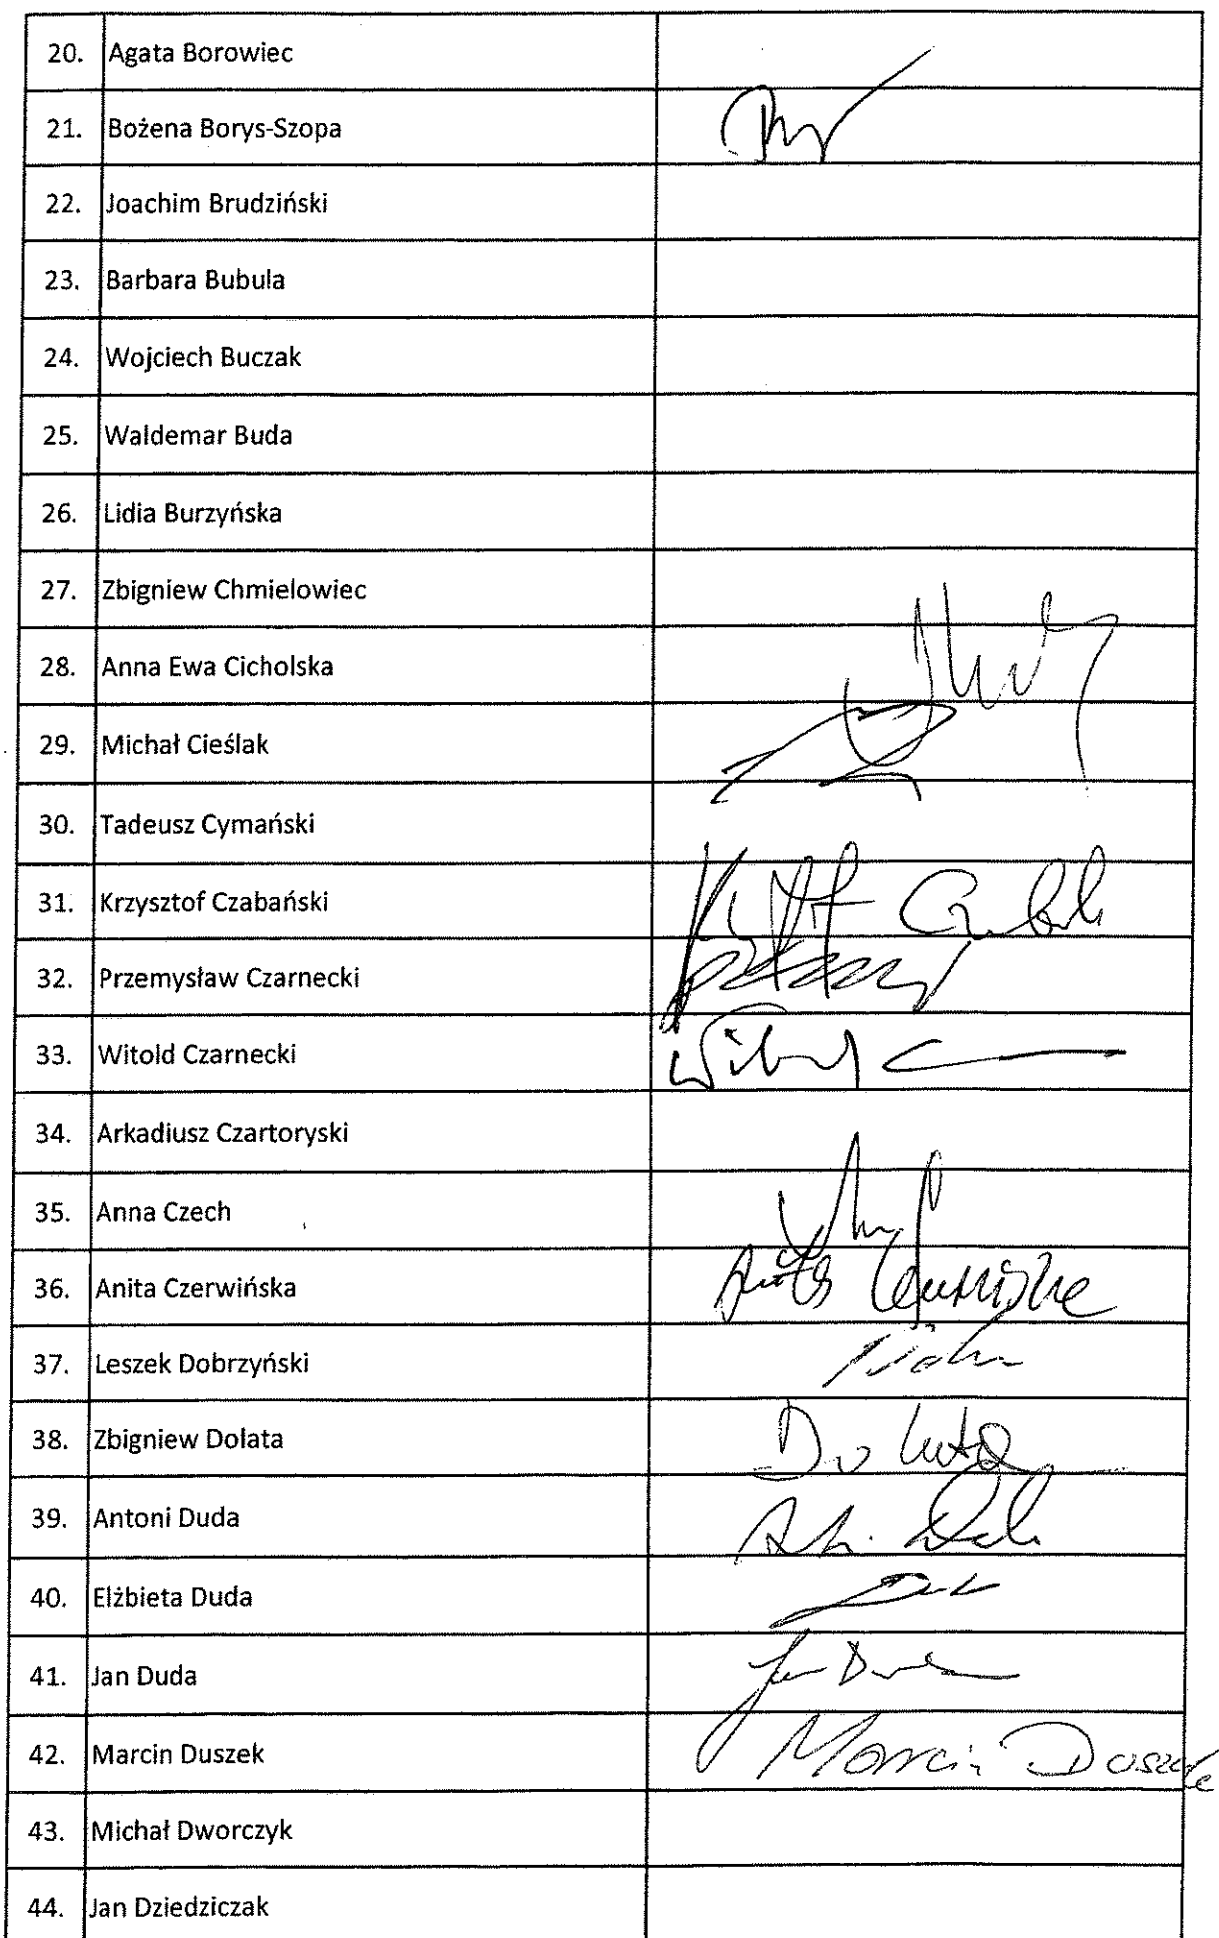 20. Agata Borowiec
21. Bożena Borys-Szopa
22. Joachim Brudziński
23. Barbara Bubula
24. Wojciech Buczak
25. Waldemar Buda
26. Lidia Burzyńska
27. Zbigniew Chmielowiec
28. Anna Ewa Cicholska
29. Michał Cieślak
30. Tadeusz Cymański
31. Krzysztof Czabański
32. Przemysław Czarnecki
33. Witold Czarnecki
34. Arkadiusz Czartoryski
35. Anna Czech
36. Anita Czerwińska
37. Leszek Dobrzyński
38. Zbigniew Dolata Dolata
39. Antoni Duda
40. Elżbieta Duda
41. Jan Duda Jan Duda
42. Marcin Duszek Marcin Duszek
43. Michał Dworczyk
44. Jan Dziedziczak